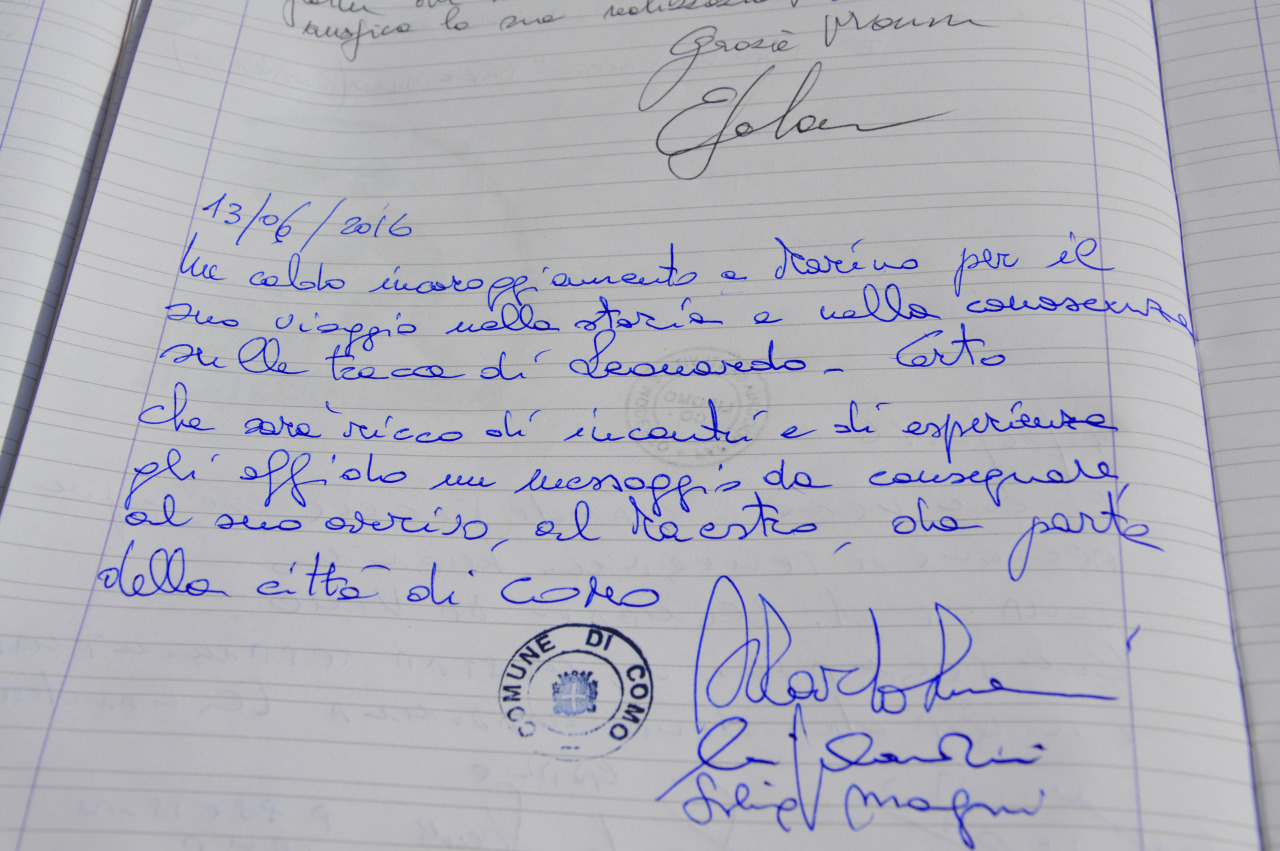 la sua
Grazie
13/06/2016
Un caldo incoraggiamento a Marino per il
suo viaggio nella storia e nella conoscenza
sulle tracce di Leonardo - Certo
che sarà ricco di incontri e di esperienze
gli affido un messaggio da consegnare,
al suo arrivo, al Maestro, da parte
della città di Como
COMUNE DI COMO
Magni